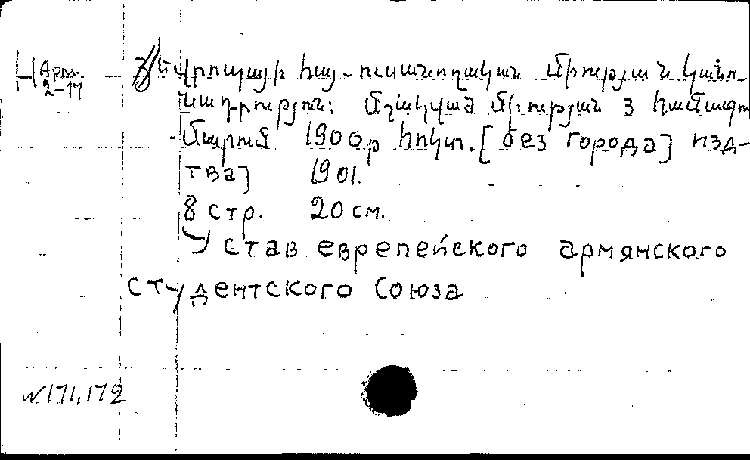 Н Арм.
2-17
Եւրոպայի հայ-ուսանողական միութեան կանո-
նադրութիւն: Մշակված միութեան 3 համագու-
մարում 1900 թ հոկտ. [без города] изд-
тва] 1901.
8 стр. 20 см.
Устав еврепейского армянского
студентского Союза
N 171,172